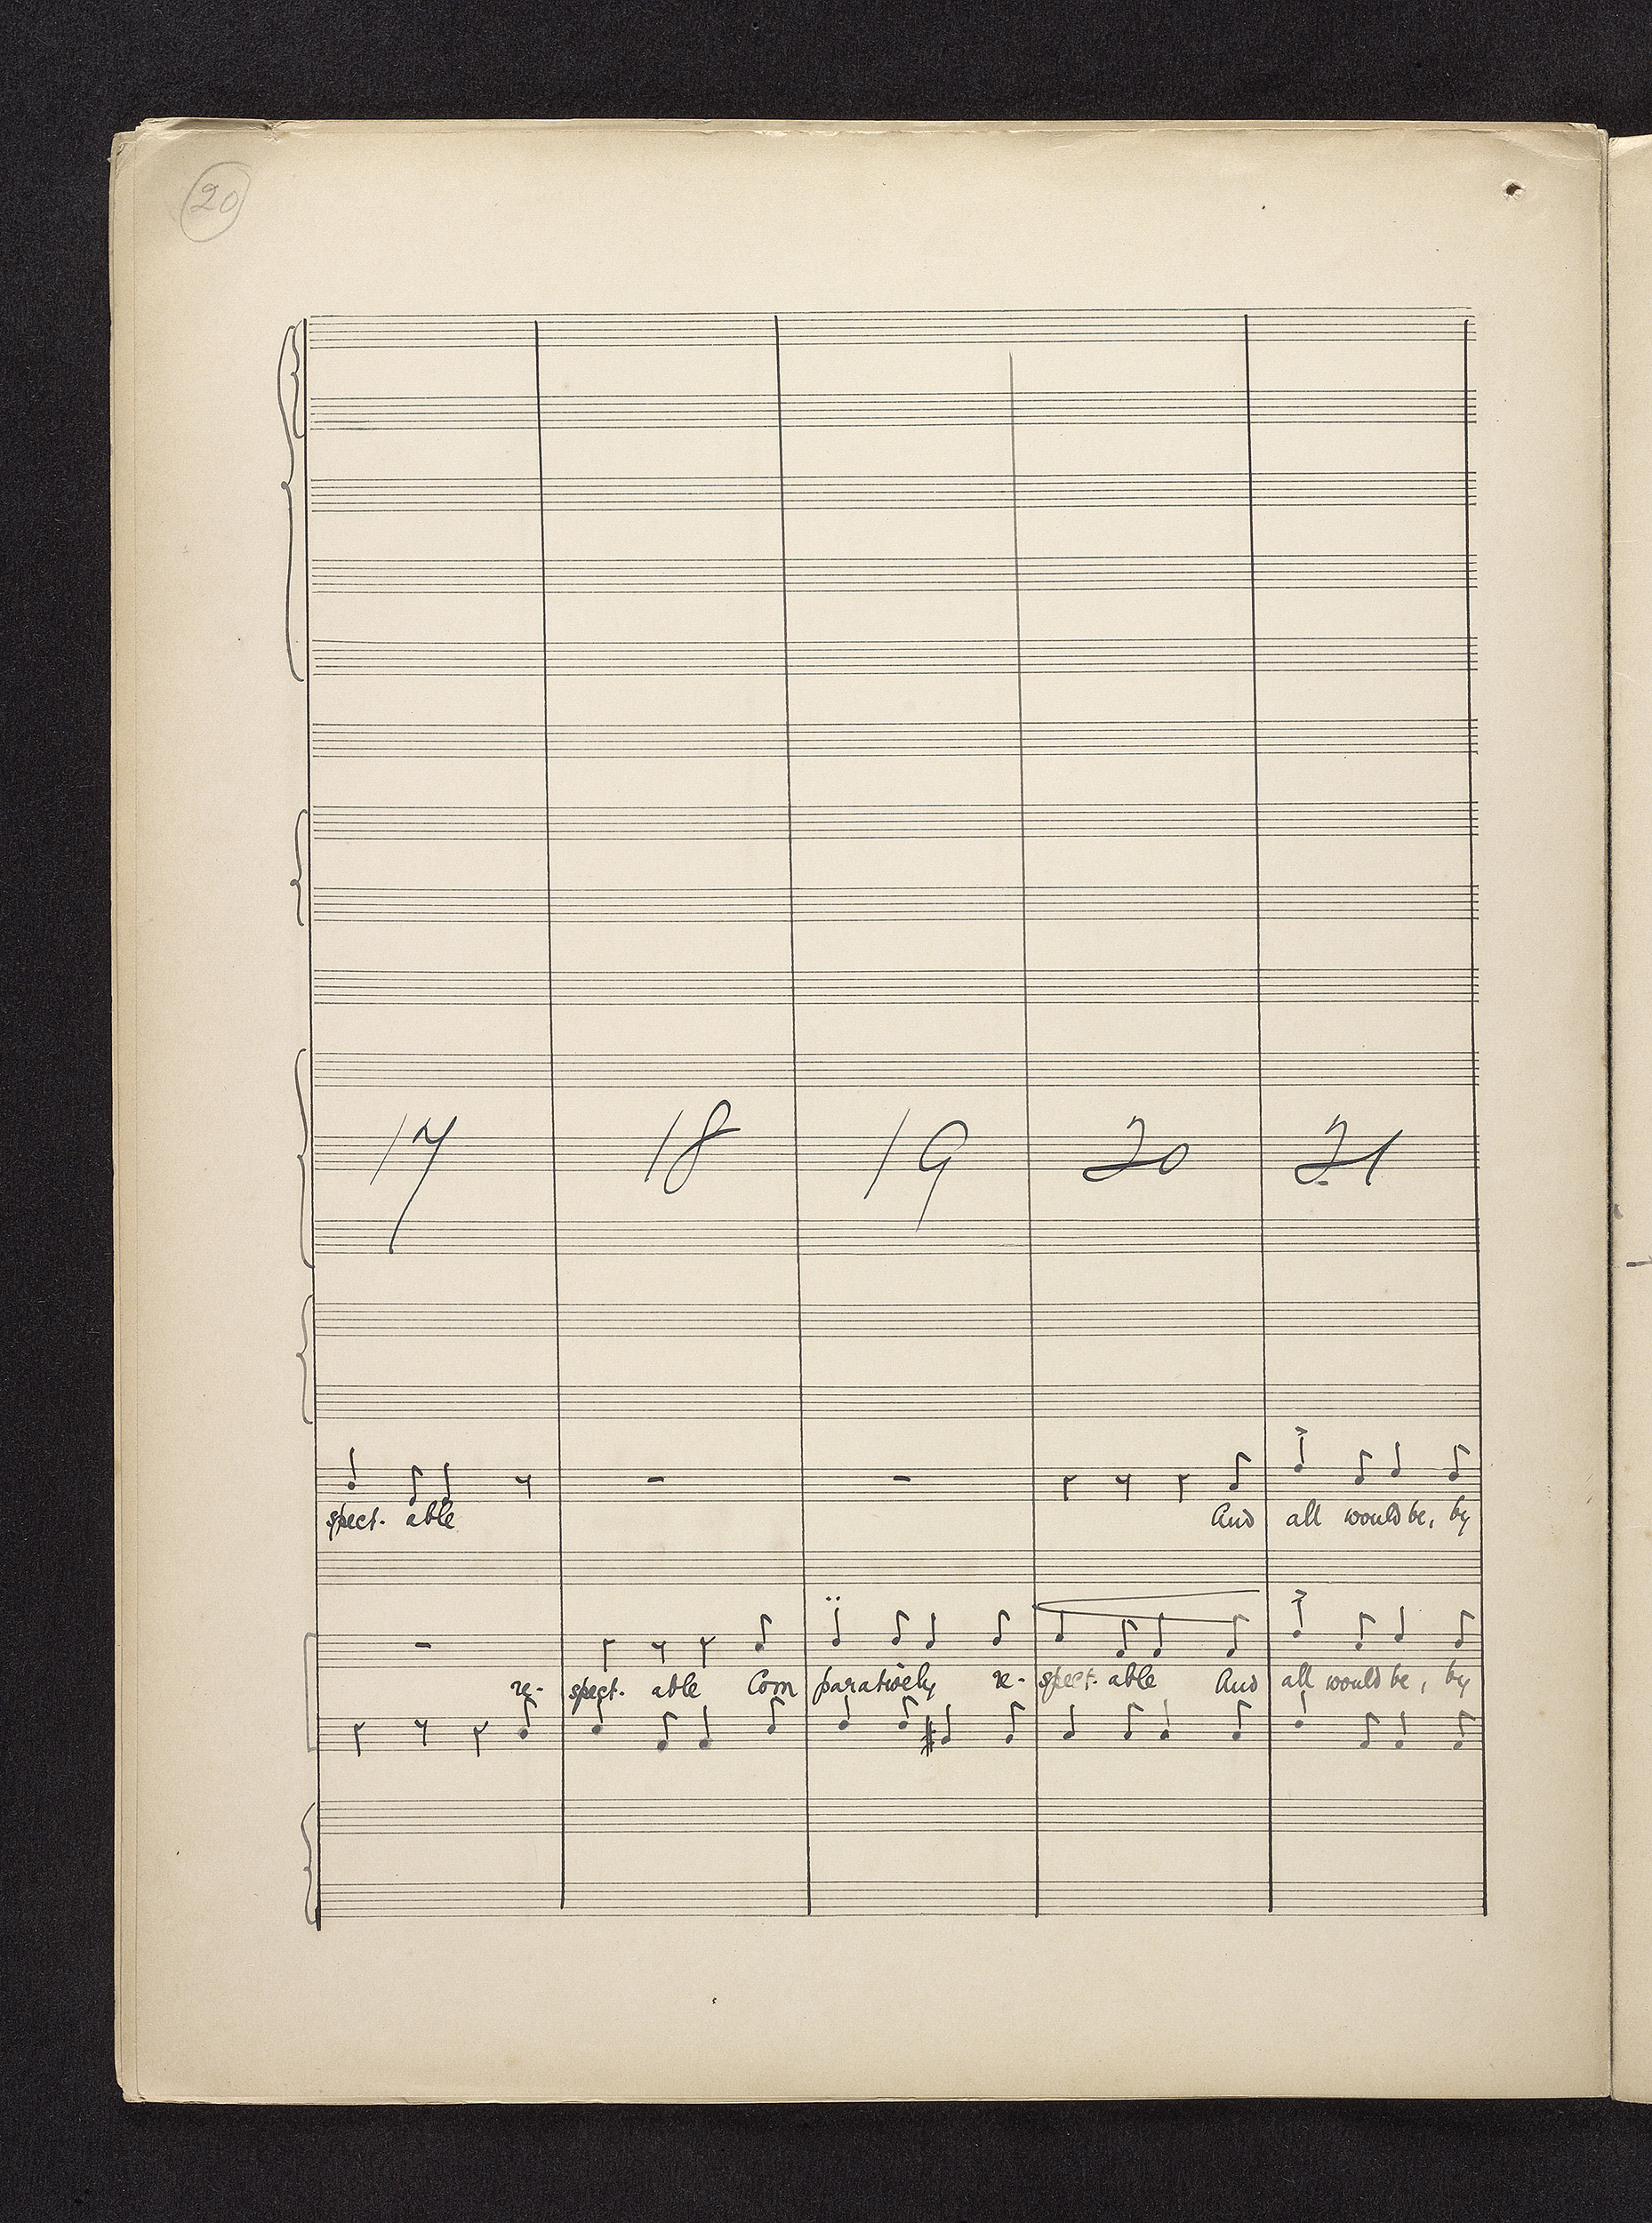 20
17 18 19 20 21
spect. able And all would be, by
re- spect. able Com paratively re- spect. able And all would be, by